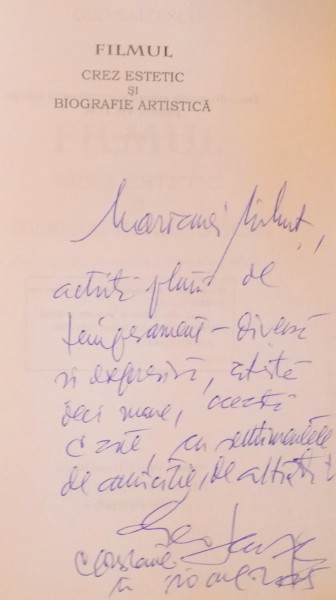 FILMUL
CREZ ESTETIC
ȘI
BIOGRAFIE ARTISTICĂ
Marianei Mihuț,
actriță plină de
temperament - diversă
și expresivă, artistă
deci mare, această
carte, cu sentimentele
de amiciție, de
Geo